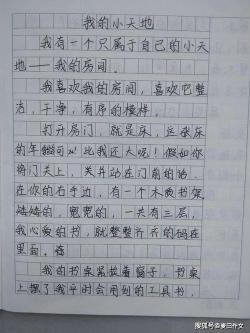 我的小天地
我有一个只属于自己的小天
地——我的房间。
我喜欢我的房间，喜欢它整
洁，干净，有序的模样。
打开房门，就是床，这张床
的年龄可以比我还大呢！假如你
将门关上，关并站在门前的话，
在你的右手边，有一个木质书架
矮矮的，宽宽的，一共有三层，
我心爱的书，就整整齐齐的码在
里面。
我的书桌紧挨着窗子，书桌
上摆了我平时会用到的工具书，
搜狐号@麦三作文